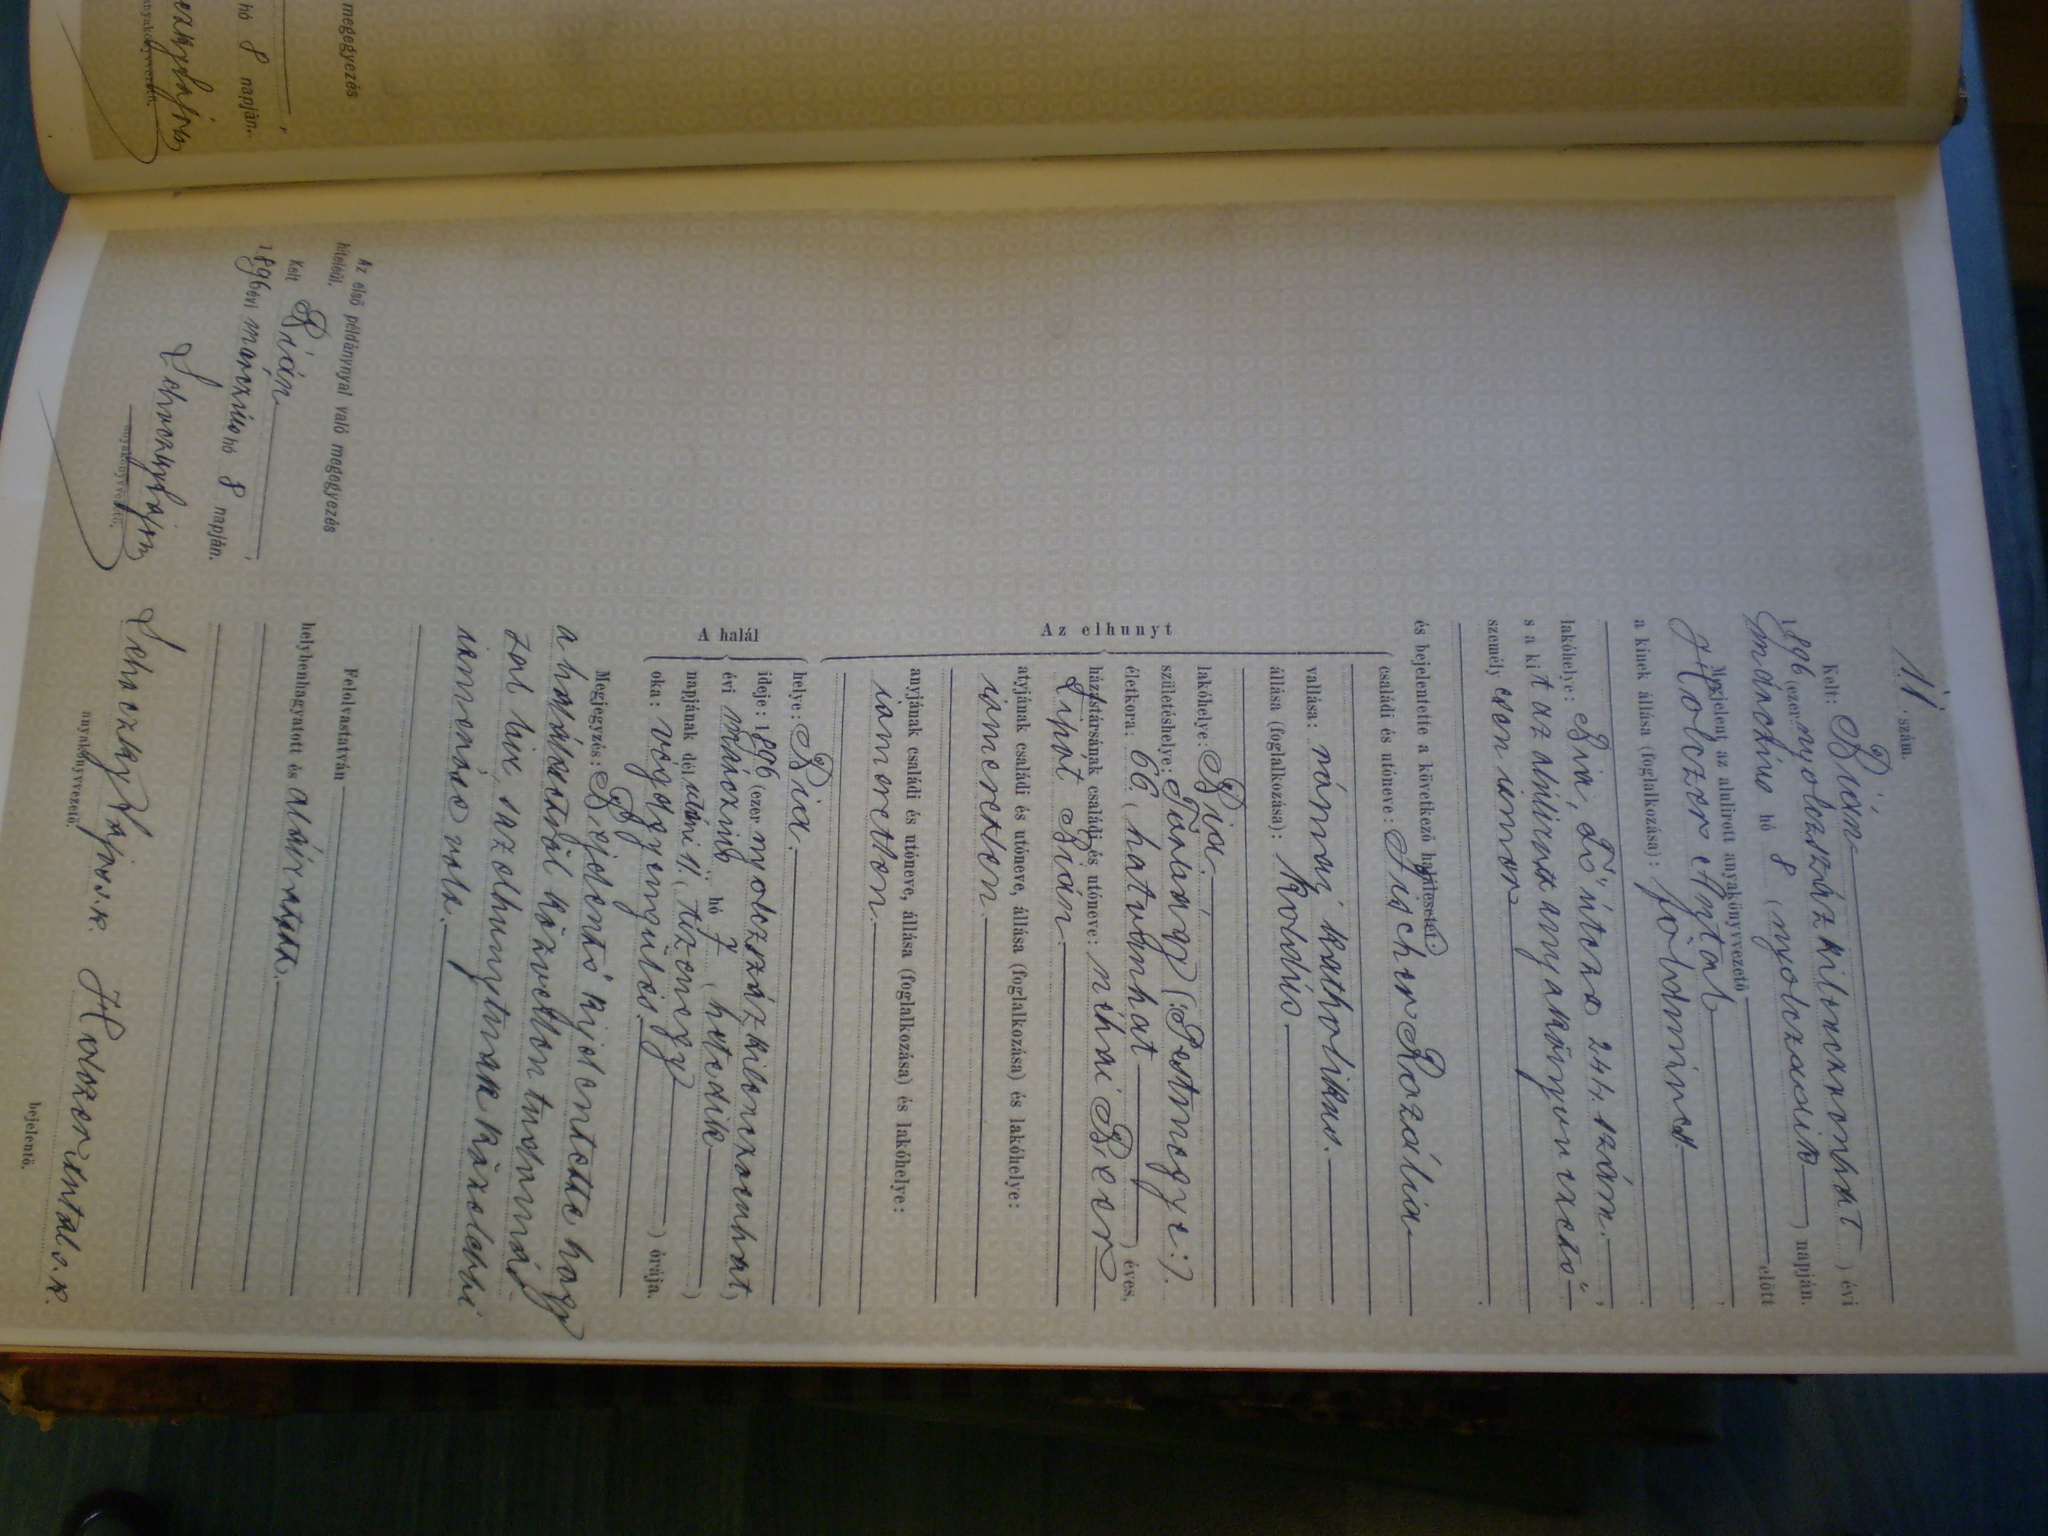 megegyezés
hó 8 napján.
anyakönyvvezető.
11. szám.
Kelt: Bián
1896 (ezer nyolczszáz kilenczvenhat) évi
márczius hó 8 (nyolczadik) napján.
Megjelent az alulirott anyakönyvvezető előtt
Holczer Antal,
a kinek állása (foglalkozása): földmíves
lakóhelye: Bia, Fő útcza 244. szám.,
s a kit az alulírott anyakönyvvezető
személyesen ismer.
és bejelentette a következő halálesetet:
Az elhunyt
családi és utóneve: Fischer Rozália
vallása: római katholikus.
állása (foglalkozása): koldús
lakóhelye: Bia.
születéshelye: (:Pestmegye:).
életkora: 66 (hatvanhat) éves,
házastársának családi és utóneve: néhai Beer
Lipót Bián.
atyjának családi és utóneve, állása (foglalkozása) és lakóhelye:
ismeretlen.
anyjának családi és utóneve, állása (foglalkozása) és lakóhelye:
ismeretlen.
A halál
helye: Bia.
ideje: 1896 (ezer nyolczszáz kilenczvenhat)
évi márczius hó 7 (hetedik)
napjának dél utáni 11. (tizenegy) órája.
oka: végelgyengülés.
Megjegyzés: Bejelentő kijelentette hogy
a halálesetről közvetlen tudomás-
sal bir, s az elhunytnak közelebbi
ismerőse volt.
Felolvastatván
helybenhagyatott és aláiratott.
s.k. Holczer Antal s.k.
anyakönyvvezető. bejelentő.
Az első példánnyal való megegyezés
hiteléül.
Kelt Bián,
1896 évi márczius hó 8 napján.
anyakönyvvezető.